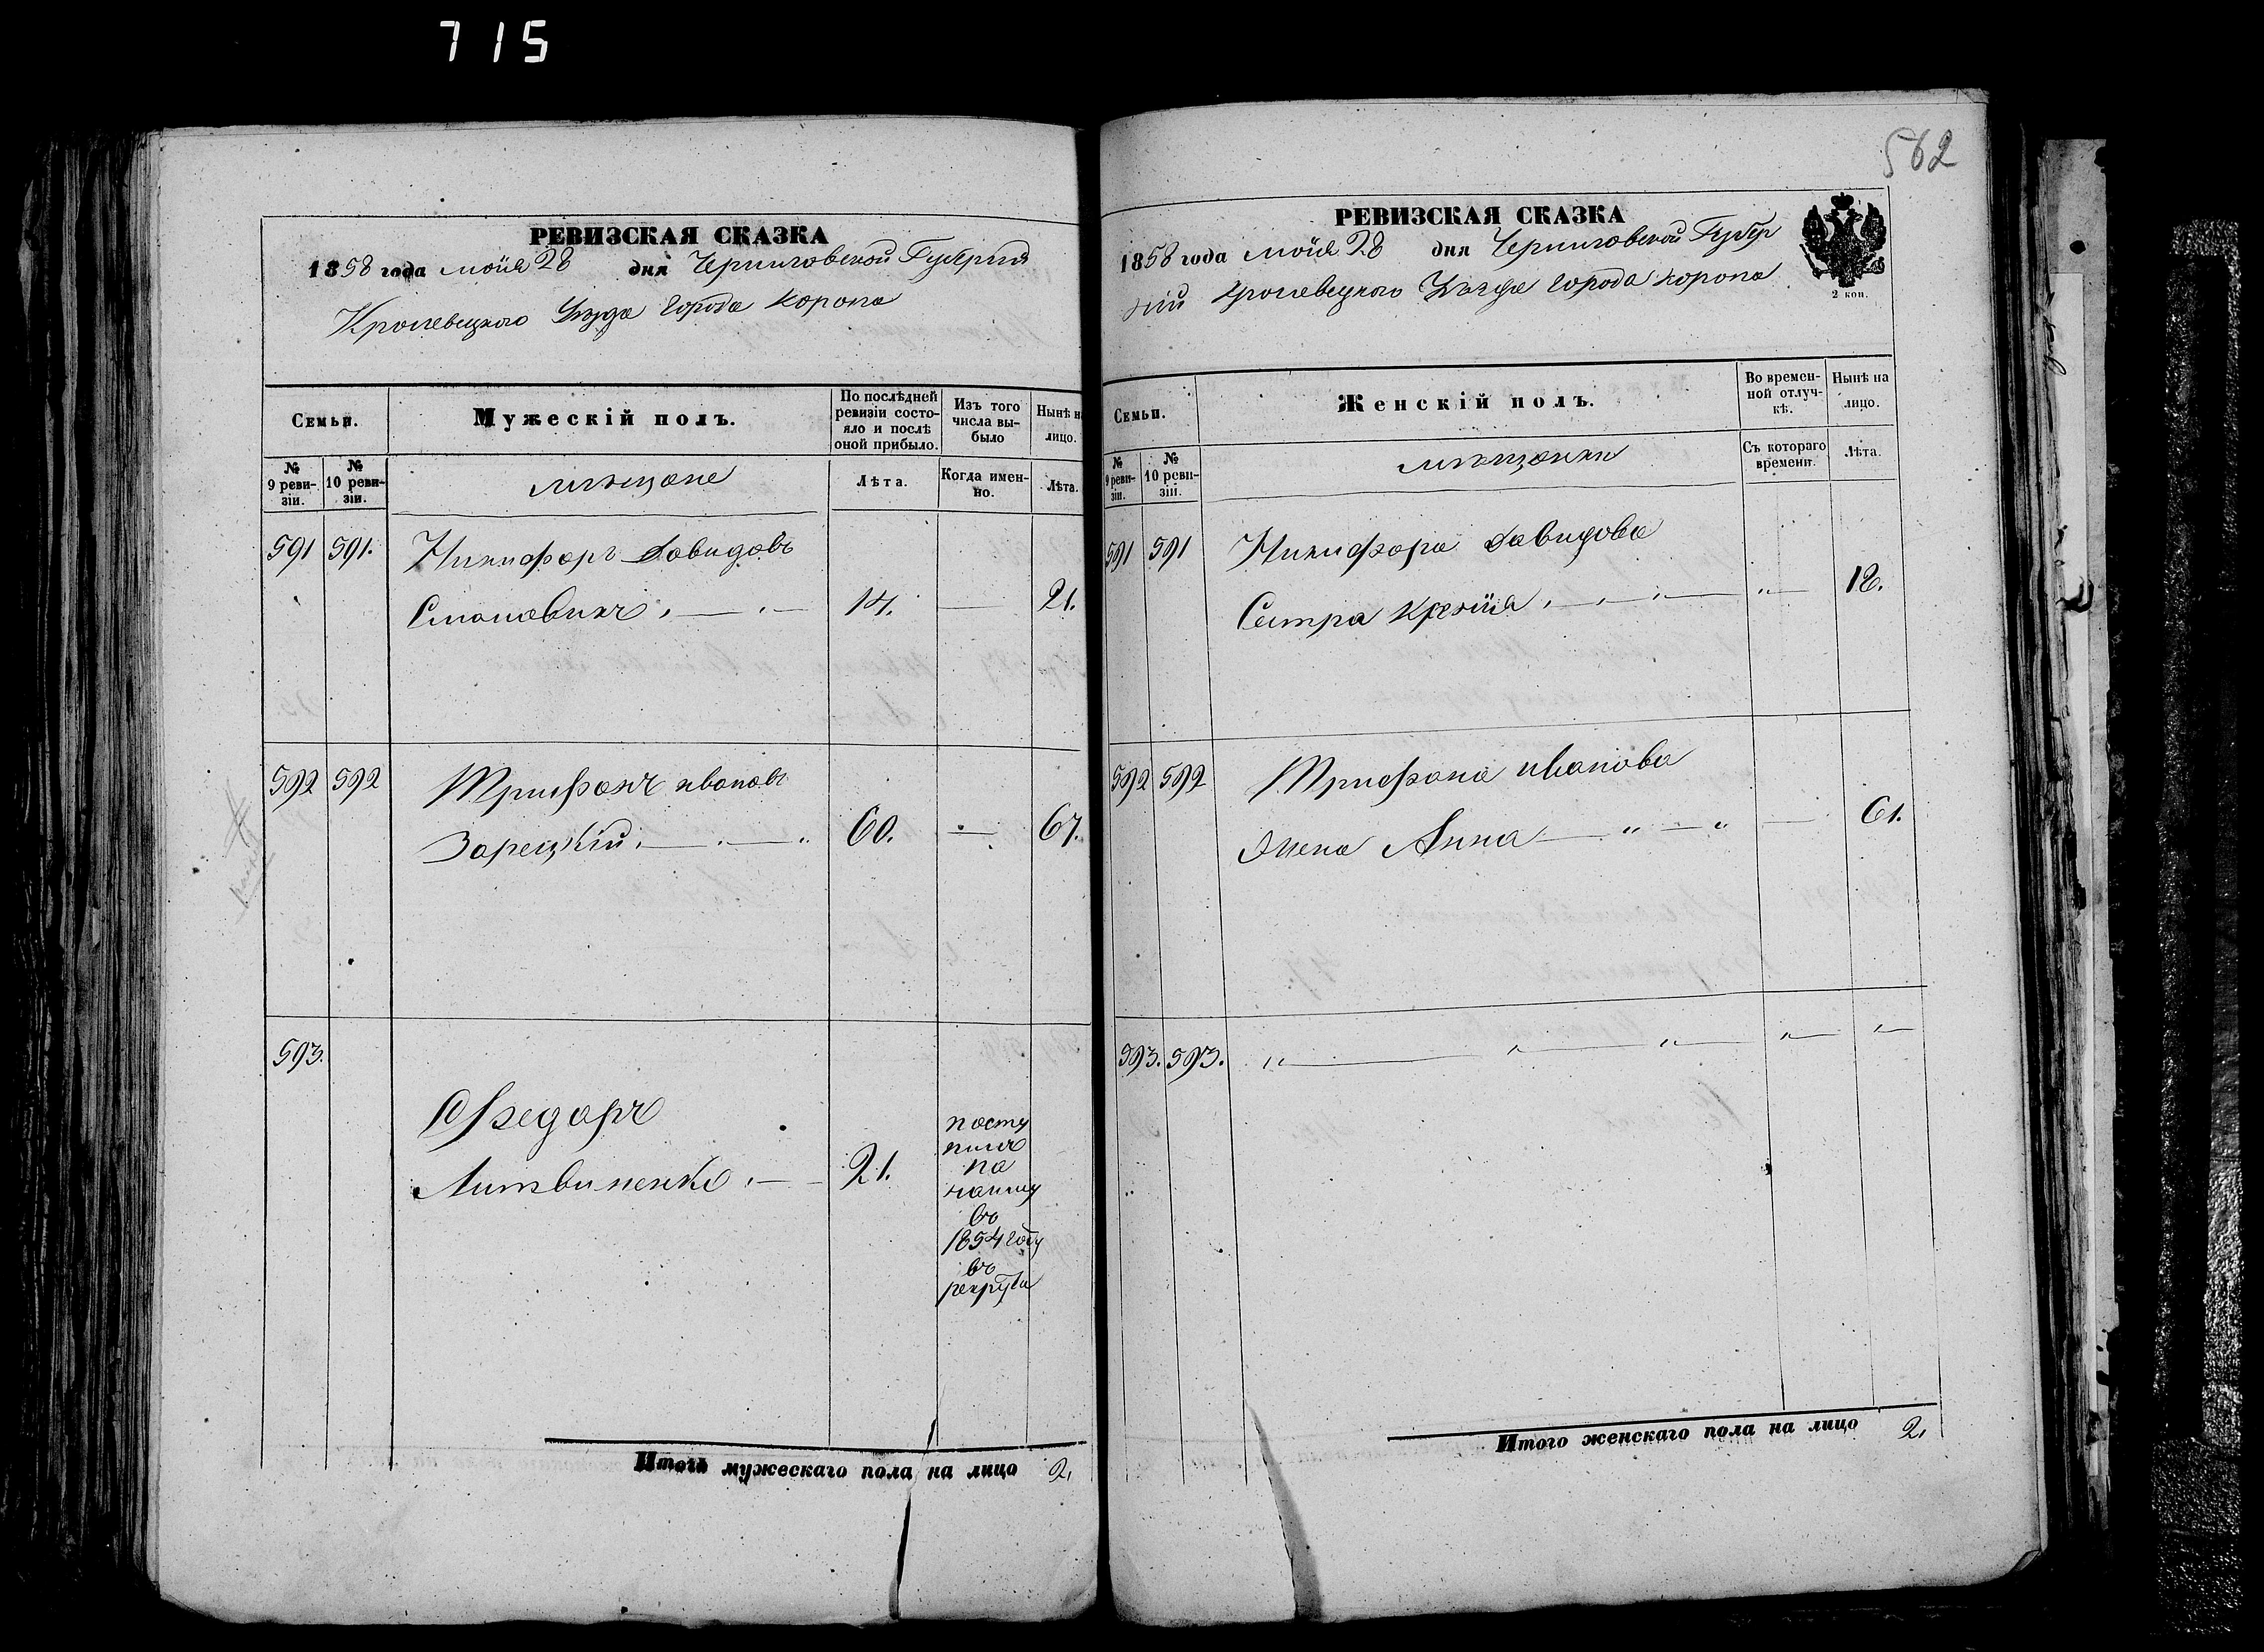 715
562
РЕВИЗСКАЯ СКАЗКА
1858 года Мойя 28 дня Черниговской Губерния
Кролевецкого Уезда города Коропа
Семьи.
Мужескій полъ.
По послѣдней ревизіи состояло и послѣ оной прибыло.
Изъ того числа выбыло
Нынѣ на лицо.
№ 9 ревизіи.
№ 10 ревизіи.
мѣщане
Лѣта.
Когда именно.
Лѣта.
591 591. Никифоръ Давидовъ
14. 21.
592 592 Трифонъ ивановъ
Зарецкій 60. 67.
593.
Федоръ
Литвиненко 21.
посту
пилъ
по
найму
въ
1854 году
въ
рекруты
Итого мужескаго пола на лицо 2,
РЕВИЗСКАЯ СКАЗКА
1858 года Мойя 28 дня Черниговской Губер
ніи Кролевецкого Уезда города Коропа
2 коп.
Семьи.
Женскій полъ.
Во временной отлучкѣ.
Нынѣ на лицо.
№ 9 ревизіи.
№ 10 ревизіи.
мѣщанки
Съ котораго времени.
Лѣта.
591 591 Никифора Давидова
Сестра 18.
592 592 Трифона иванова
жена Анна 61.
593. 593.
Итого женскаго пола на лицо 2,